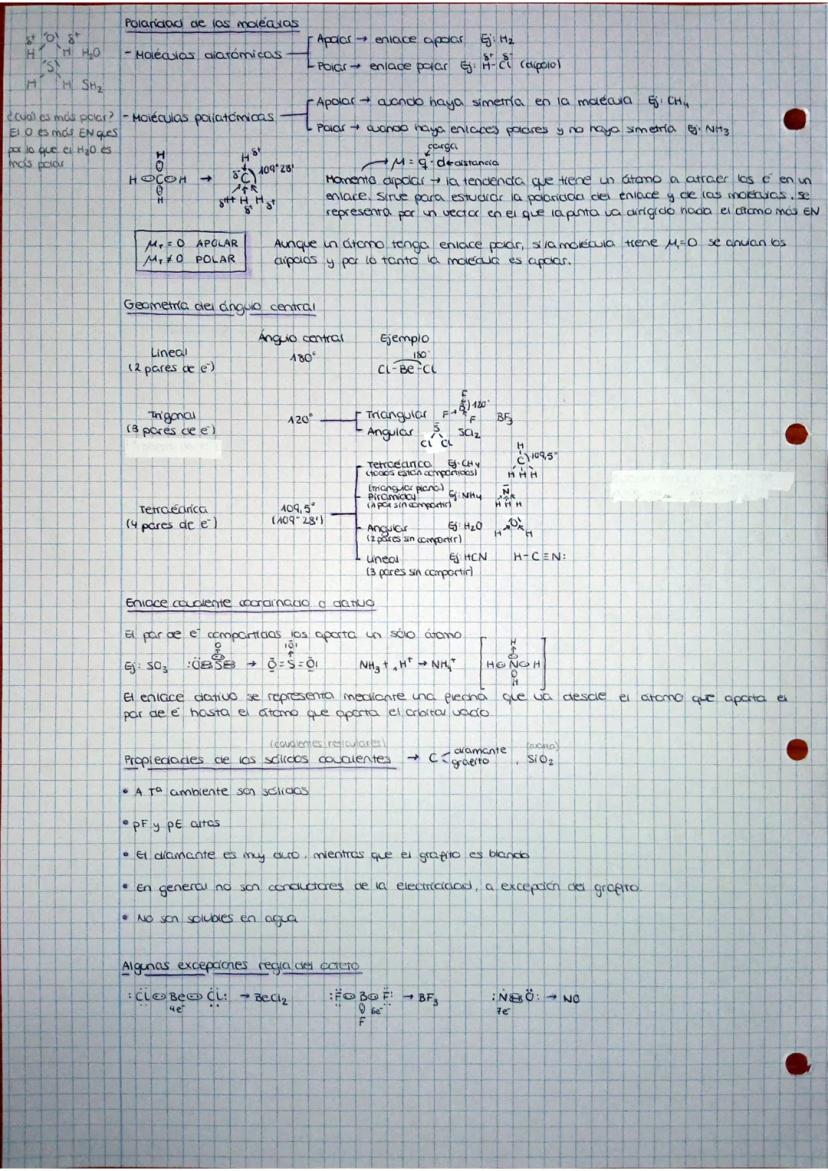 Polaridad de las moléculas
δ+ |O| δ+
H H H2O
|S|
H H SH2
- Moléculas diatómicas
Apolar → enlace apolar Ej: H2
Polar → enlace polar Ej: H-Cl (dipolo)
δ+ δ-
¿Cuál es más polar?
El O es más EN que S
por lo que el H2O es
más polar
- Moléculas poliatómicas
Apolar → cuando haya simetría en la molécula Ej: CH4
Polar → cuando haya enlaces polares y no haya simetría Ej: NH3
carga
M = q · d → distancia
H
H C H →
H
H δ+
δ- C 109° 28'
δ+ H H H δ+
δ+
Momento dipolar → la tendencia que tiene un átomo a atraer los e- en un
enlace. Sirve para estudiar la polaridad del enlace y de las moléculas, se
representa por un vector en el que la punta va dirigido hacia el átomo más EN
MT = 0 APOLAR
MT ≠ 0 POLAR
Aunque un átomo tenga enlace polar, si la molécula tiene MT=0 se anulan los
dipolos y por lo tanto la molécula es apolar.
Geometría del ángulo central
Ángulo central Ejemplo
Lineal 180° 180°
(2 pares de e-) Cl-Be-Cl
Trigonal 120° Triangular F B F F 120° BF3
(3 pares de e-) Angular S Cl Cl SCl2
Tetraédrica 109,5°
(4 pares de e-) (109° 28')
Tetraédrico Ej: CH4 H C H H H 109,5°
(todos están compartidos)
(triangular plana)
Piramidal Ej: NH4 N H H H
(1 par sin compartir)
Angular Ej: H2O H |O| H
(2 pares sin compartir)
Lineal Ej: HCN H-C≡N:
(3 pares sin compartir)
Enlace covalente coordinado o dativo
El par de e- compartidos los aporta un sólo átomo
Ej: SO3 → O=S=O NH3 + H+ → NH4+ [H N H H H]
El enlace dativo se representa mediante una flecha que va desde el átomo que aporta el
par de e- hasta el átomo que aporta el orbital vacío.
(covalentes reticulares)
Propiedades de los sólidos covalentes → C diamante grafito , SiO2
• A Tª ambiente son sólidos
• pF y pE altos
• El diamante es muy duro, mientras que el grafito es blando
• En general no son conductores de la electricidad, a excepción del grafito.
• No son solubles en agua
Algunas excepciones regla del octeto
:Cl Be Cl: → BeCl2 :F B F: → BF3 :N O: → NO
4e- 6e- 7e-
F